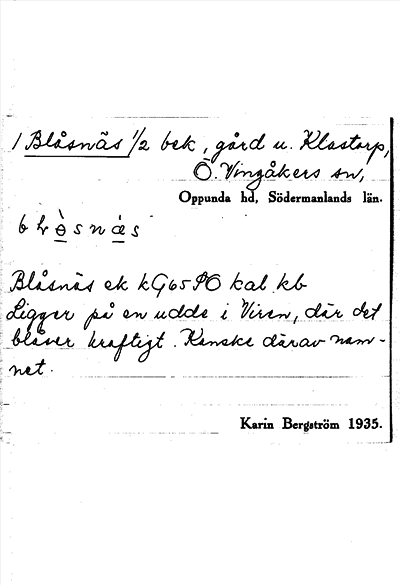 / Blåsnäs 1/2 bek, gård u. Klastorp,
Ö. Vingåkers sn,
Oppunda hd, Södermanlands län.
Blåsnäs ek kG65 PO kal kb
Ligger på en udde i Viren, där det
blåser kraftigt. Kanske därav nam-
net.
Karin Bergström 1935.